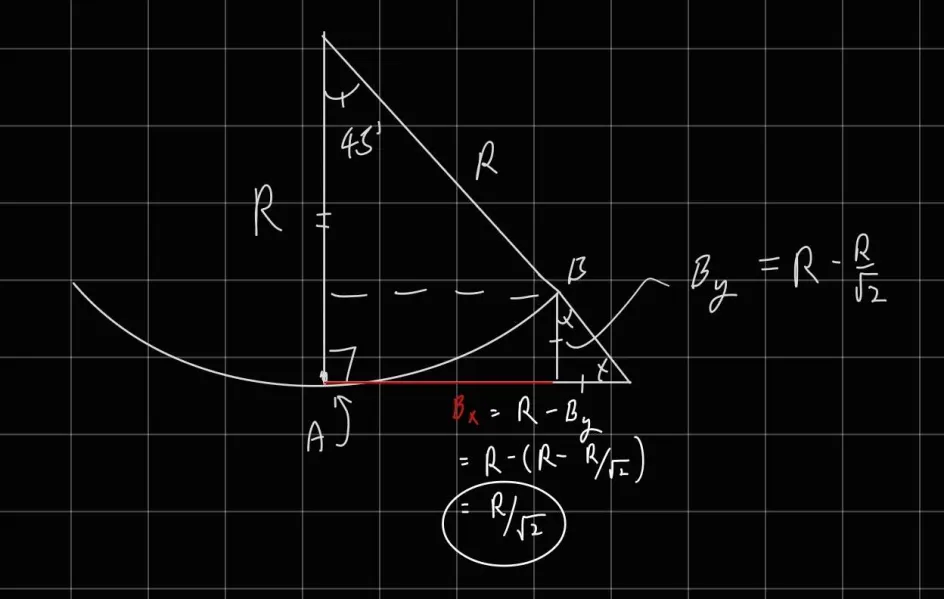 45°
R
R
B
B_y = R - R/√2
x
x
A
B_x = R - B_y
= R - (R - R/√2)
= R/√2